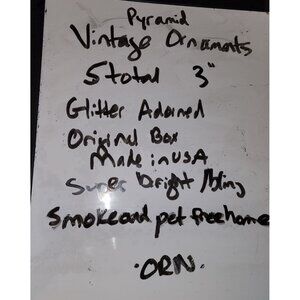 Pyramid
Vintage Ornaments
5 total 3"
Glitter Adorned
Original Box
Made in USA
Super bright /bling
Smoke and pet free home
·ORN·